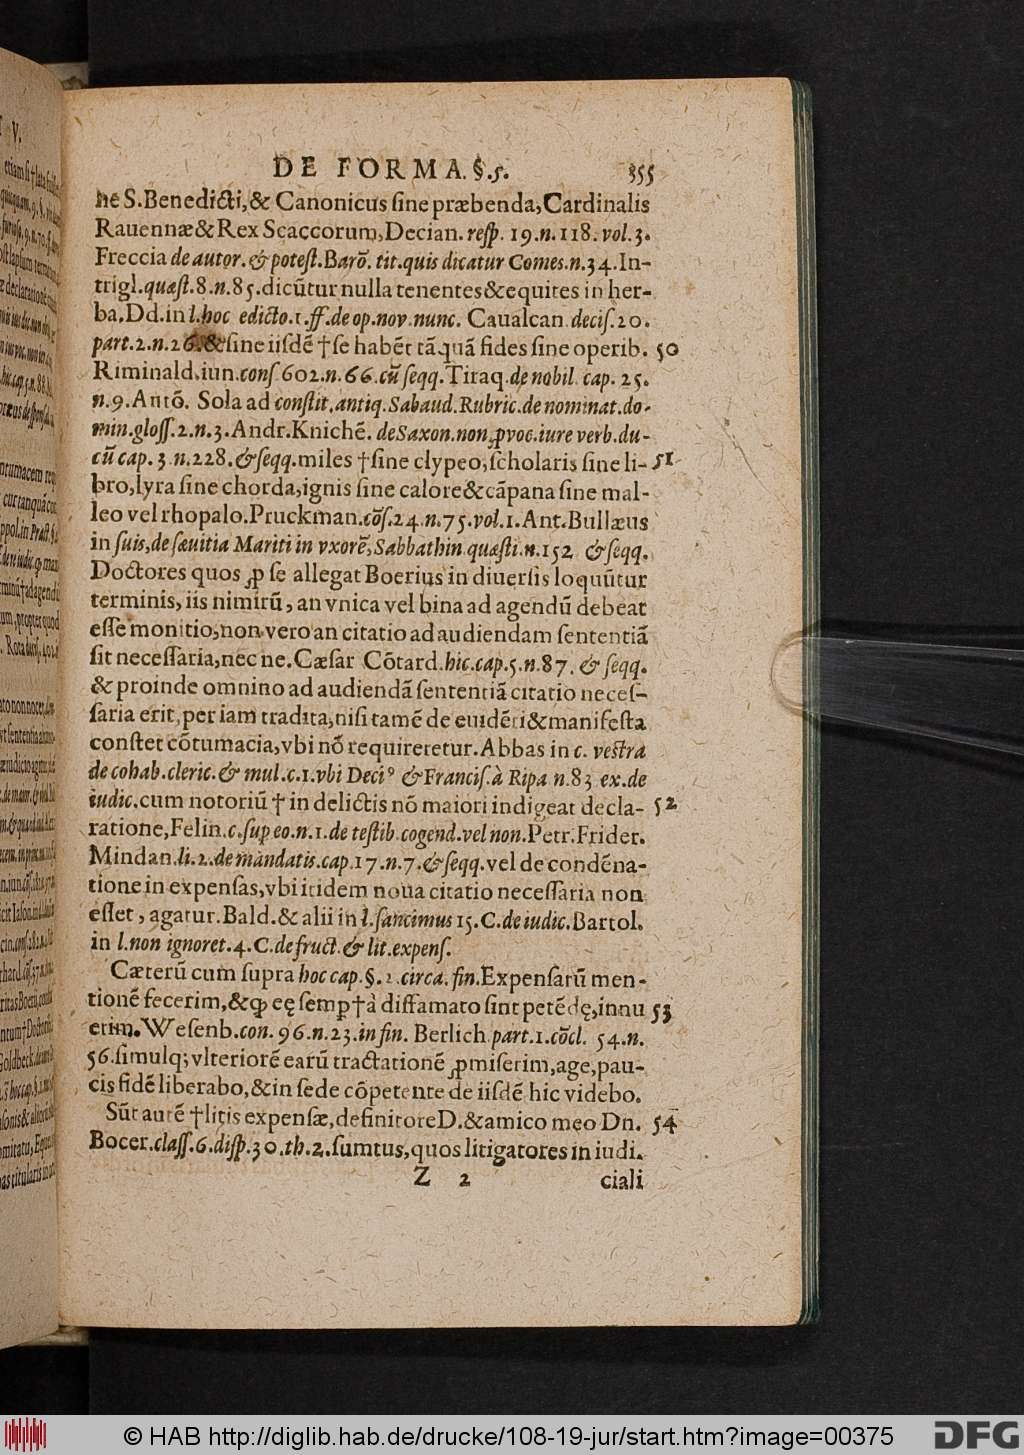 DE FORMA. §. 5. 355
ne S. Benedicti, & Canonicus ſine præbenda, Cardinalis
Rauennæ & Rex Scaccorum, Decian. reſp. 19. n. 118. vol. 3.
Freccia de autor. & poteſt. Barõ. tit. quis dicatur Comes. n. 34. In-
trigl. quæſt. 8. n. 85. dicũtur nulla tenentes & equites in her-
ba. Dd. in l. hoc edicto. 1. ff. de op. nov. nunc. Caualcan. deciſ. 20.
part. 2. n. 26. & ſine iiſdẽ † ſe habẽt tã. quã fides ſine operib. 50
Riminald. iun. conſ 602. n. 66. cũ ſeqq. Tiraq. de nobil. cap. 25.
n. 9. Antõ. Sola ad conſtit. antiq. Sabaud. Rubric. de nominat. do-
min. gloſſ. 2. n. 3. Andr. Knichẽ. de Saxon. non ꝓvoc. iure verb. du-
cũ cap. 3. n. 228. & ſeqq. miles † ſine clypeo, ſcholaris ſine li- 51
bro, lyra ſine chorda, ignis ſine calore & cãpana ſine mal-
leo vel rhopalo. Pruckman. cõſ. 24. n. 75. vol. 1. Ant. Bullæus
in ſuis, de ſævitia Mariti in vxorẽ, Sabbathin. quæſti. n. 152 & ſeqq.
Doctores quos ꝓ ſe allegat Boerius in diuerſis loquũtur
terminis, iis nimirũ, an vnica vel bina ad agendũ debeat
eſſe monitio, non vero an citatio ad audiendam ſententiã
ſit neceſſaria, nec ne. Cæſar Cõtard. hic. cap. 5. n. 87. & ſeqq.
& proinde omnino ad audiendã ſententiã citatio neceſ-
ſaria erit, per iam tradita, niſi tamẽ de euidẽti & manifeſta
conſtet cõtumacia, vbi nõ requireretur. Abbas in c. veſtra
de cohab. cleric. & mul. c. 1. vbi Deciꝰ & Franciſ. à Ripa n. 83 ex. de
iudic. cum notoriũ † in delictis nõ maiori indigeat decla- 52
ratione, Felin. c. ſup eo. n. 1. de teſtib. cogend. vel non. Petr. Frider.
Mindan. li. 2. de mandatis. cap. 17. n. 7. & ſeqq. vel de condẽna-
tione in expenſas, vbi itidem noua citatio neceſſaria non
eſſet, agatur. Bald. & alii in l. ſancimus 15. C. de iudic. Bartol.
in l. non ignoret. 4. C. de fruct. & lit. expenſ.
Cæterũ cum ſupra hoc cap. §. 2 circa. fin. Expenſarũ men-
tionẽ fecerim, & ꝙ eę ſemp † à diffamato ſint petẽdę, innu 53
erim. Weſenb. con. 96. n. 23. in fin. Berlich part. 1. cõcl. 54. n.
56. ſimulq; vlteriorẽ earũ tractationẽ ꝓmiſerim, age, pau-
cis fidẽ liberabo, & in ſede cõpetente de iiſdẽ hic videbo.
Sũt autẽ † litis expenſæ, definitore D. & amico meo Dn. 54
Bocer. claſſ. 6. diſp. 30. th. 2. ſumtus, quos litigatores in iudi.
Z 2 ciali
© HAB http://diglib.hab.de/drucke/108-19-jur/start.htm?image=00375
DFG